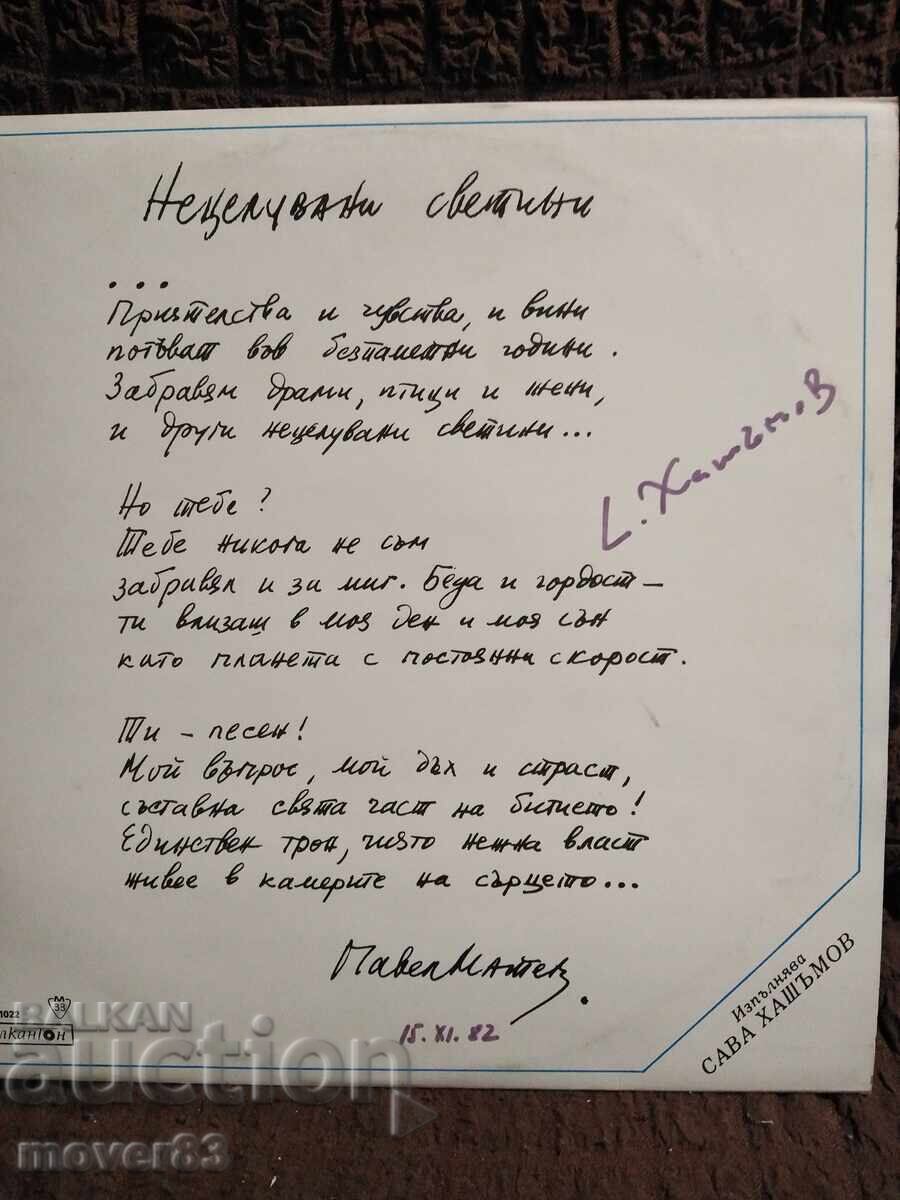 Нецелувани светини
...
Приятелства и чувства, и вини
потъват във безпаметни години.
Забравям драми, птици и жени,
и други нецелувани светини...
С. Хашъмов
Но тебе?
Тебе никога не съм
забравял и за миг. Беда и гордост –
ти влизаш в моя ден и моя сън
като планета с постоянни скорост.
Ти – песен!
Мой въпрос, мой дъх и страст,
съставна свята част на битието!
Единствен трон, чиято нежна власт
живее в камерите на сърцето...
Павел Матев
15. XI. 82
Изпълнява
САВА ХАШЪМОВ
1022
М
33
лкантон
BALKAN
auction
mover83